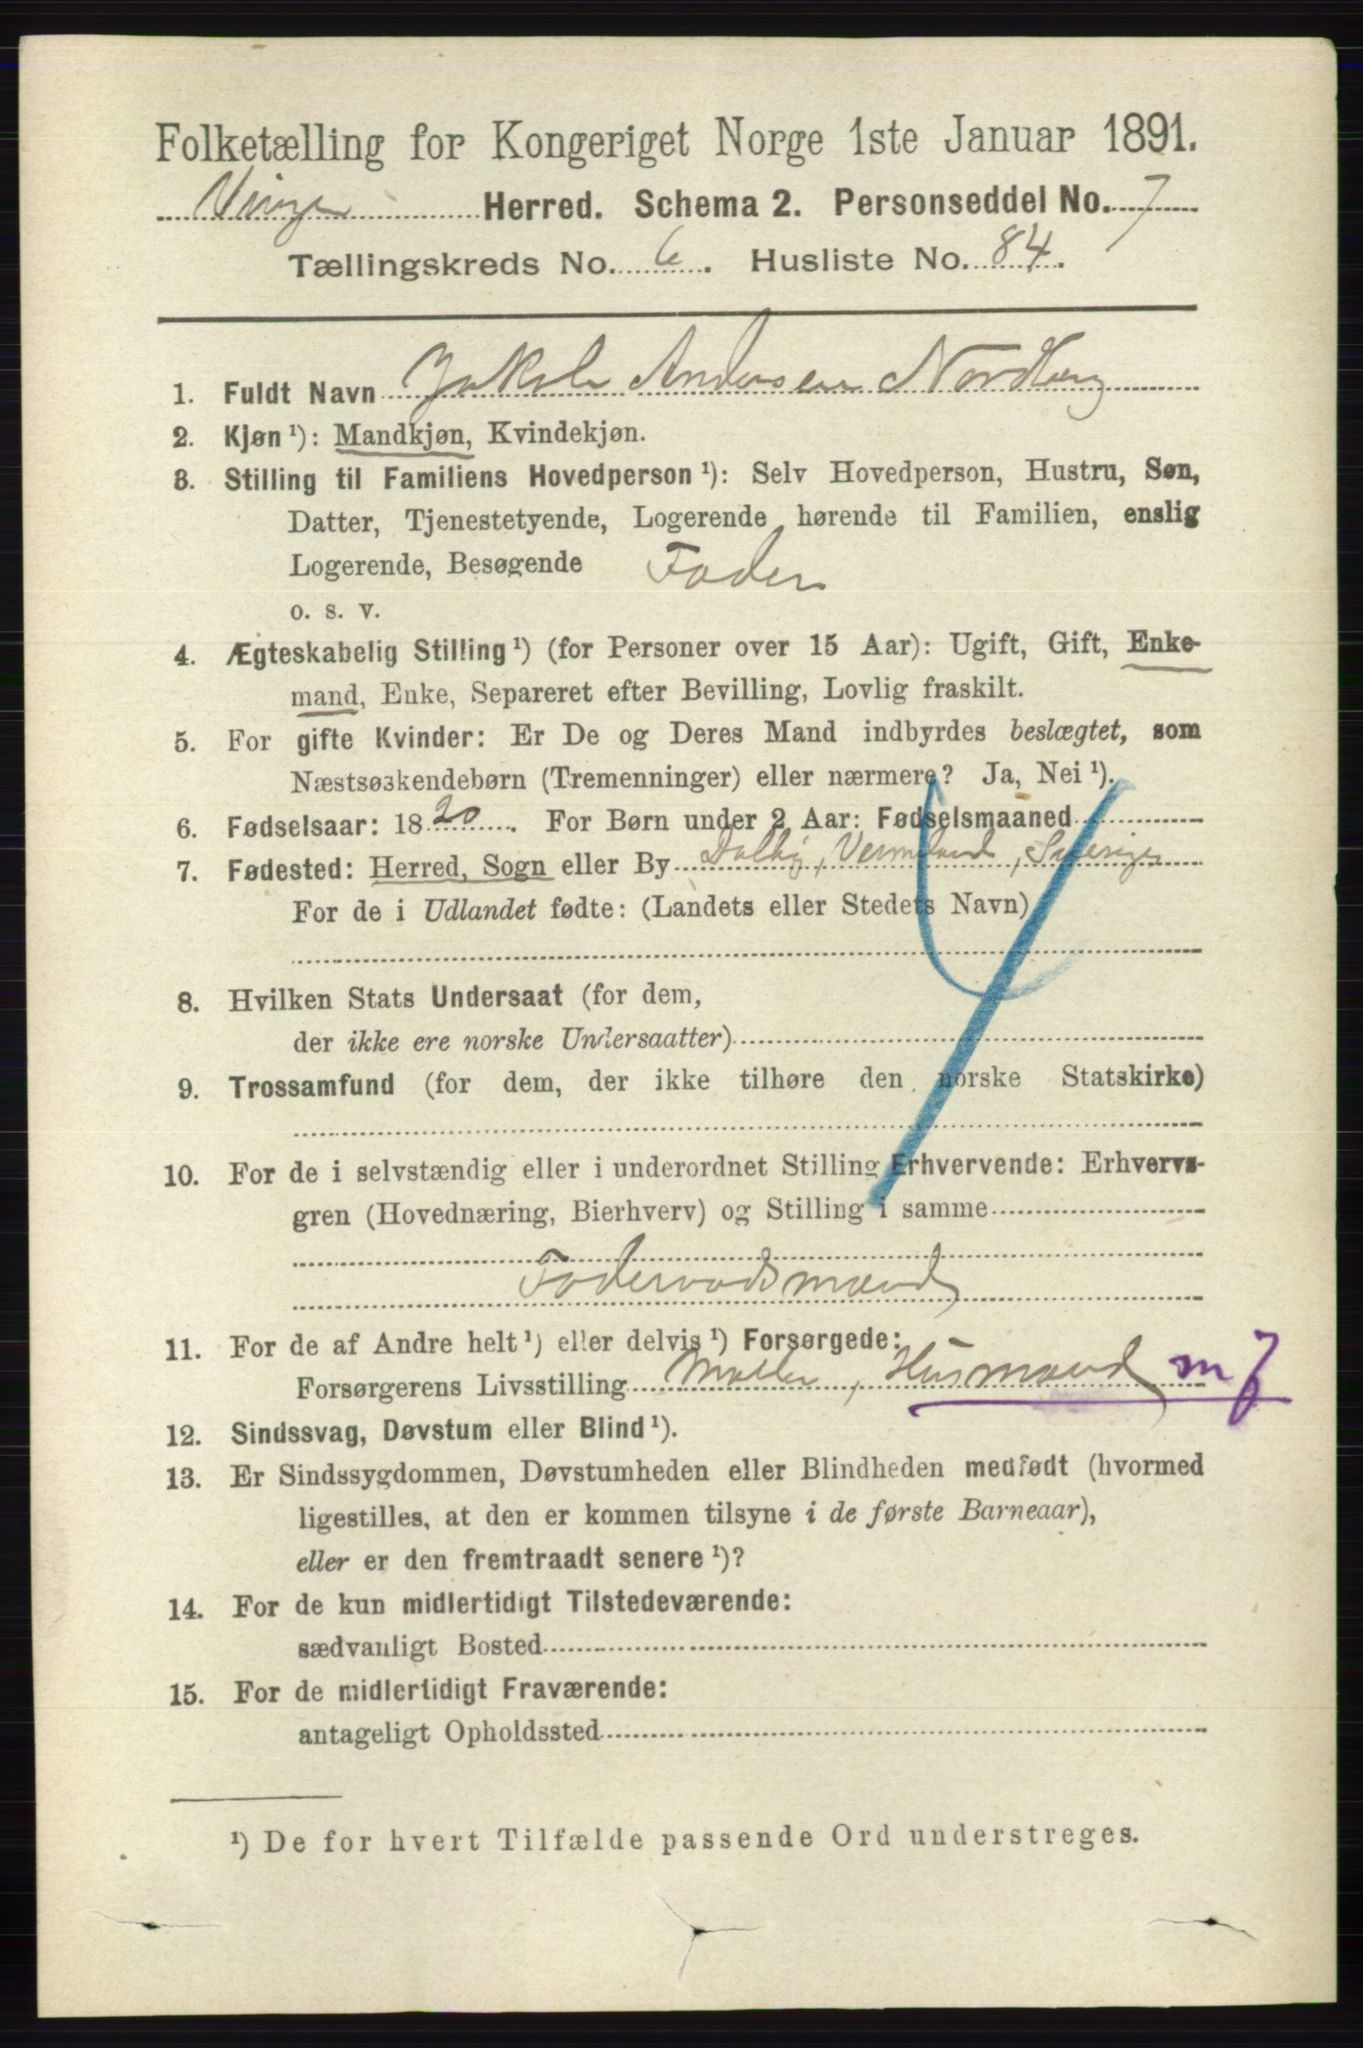 Folketælling for Kongeriget Norge 1ste Januar 1891.
Vinger Herred. Schema 2. Personseddel No. 7
Tællingskreds No. 6. Husliste No. 84.
1. Fuldt Navn Jakob Andersen Nordberg
2. Kjøn ¹): Mandkjøn, Kvindekjøn.
3. Stilling til Familiens Hovedperson ¹): Selv Hovedperson, Hustru, Søn,
Datter, Tjenestetyende, Logerende hørende til Familien, enslig
Logerende, Besøgende Fader
o. s. v.
4. Ægteskabelig Stilling ¹) (for Personer over 15 Aar): Ugift, Gift, Enke-
mand, Enke, Separeret efter Bevilling, Lovlig fraskilt.
5. For gifte Kvinder: Er De og Deres Mand indbyrdes beslægtet, som
Næstsøskendebørn (Tremenninger) eller nærmere? Ja, Nei ¹).
6. Fødselsaar: 1820. For Børn under 2 Aar: Fødselsmaaned
7. Fødested: Herred, Sogn eller By Dalby, Vermland, Sverige
For de i Udlandet fødte: (Landets eller Stedets Navn)
8. Hvilken Stats Undersaat (for dem,
der ikke ere norske Undersaatter)
9. Trossamfund (for dem, der ikke tilhøre den norske Statskirke)
10. For de i selvstændig eller i underordnet Stilling Erhvervende: Erhvervs-
gren (Hovednæring, Bierhverv) og Stilling i samme
Foderaadsmand
11. For de af Andre helt ¹) eller delvis ¹) Forsørgede:
Forsørgerens Livsstilling Møller, Husmand m J
12. Sindssvag, Døvstum eller Blind ¹).
13. Er Sindssygdommen, Døvstumheden eller Blindheden medfødt (hvormed
ligestilles, at den er kommen tilsyne i de første Barneaar),
eller er den fremtraadt senere ¹)?
14. For de kun midlertidigt Tilstedeværende:
sædvanligt Bosted
15. For de midlertidigt Fraværende:
antageligt Opholdssted
¹) De for hvert Tilfælde passende Ord understreges.